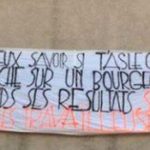 EUX SAVOIR SI T'AS LE C
CHE SUR UN BOURGE
DS SES RESULTATS
TRAVAILLEU